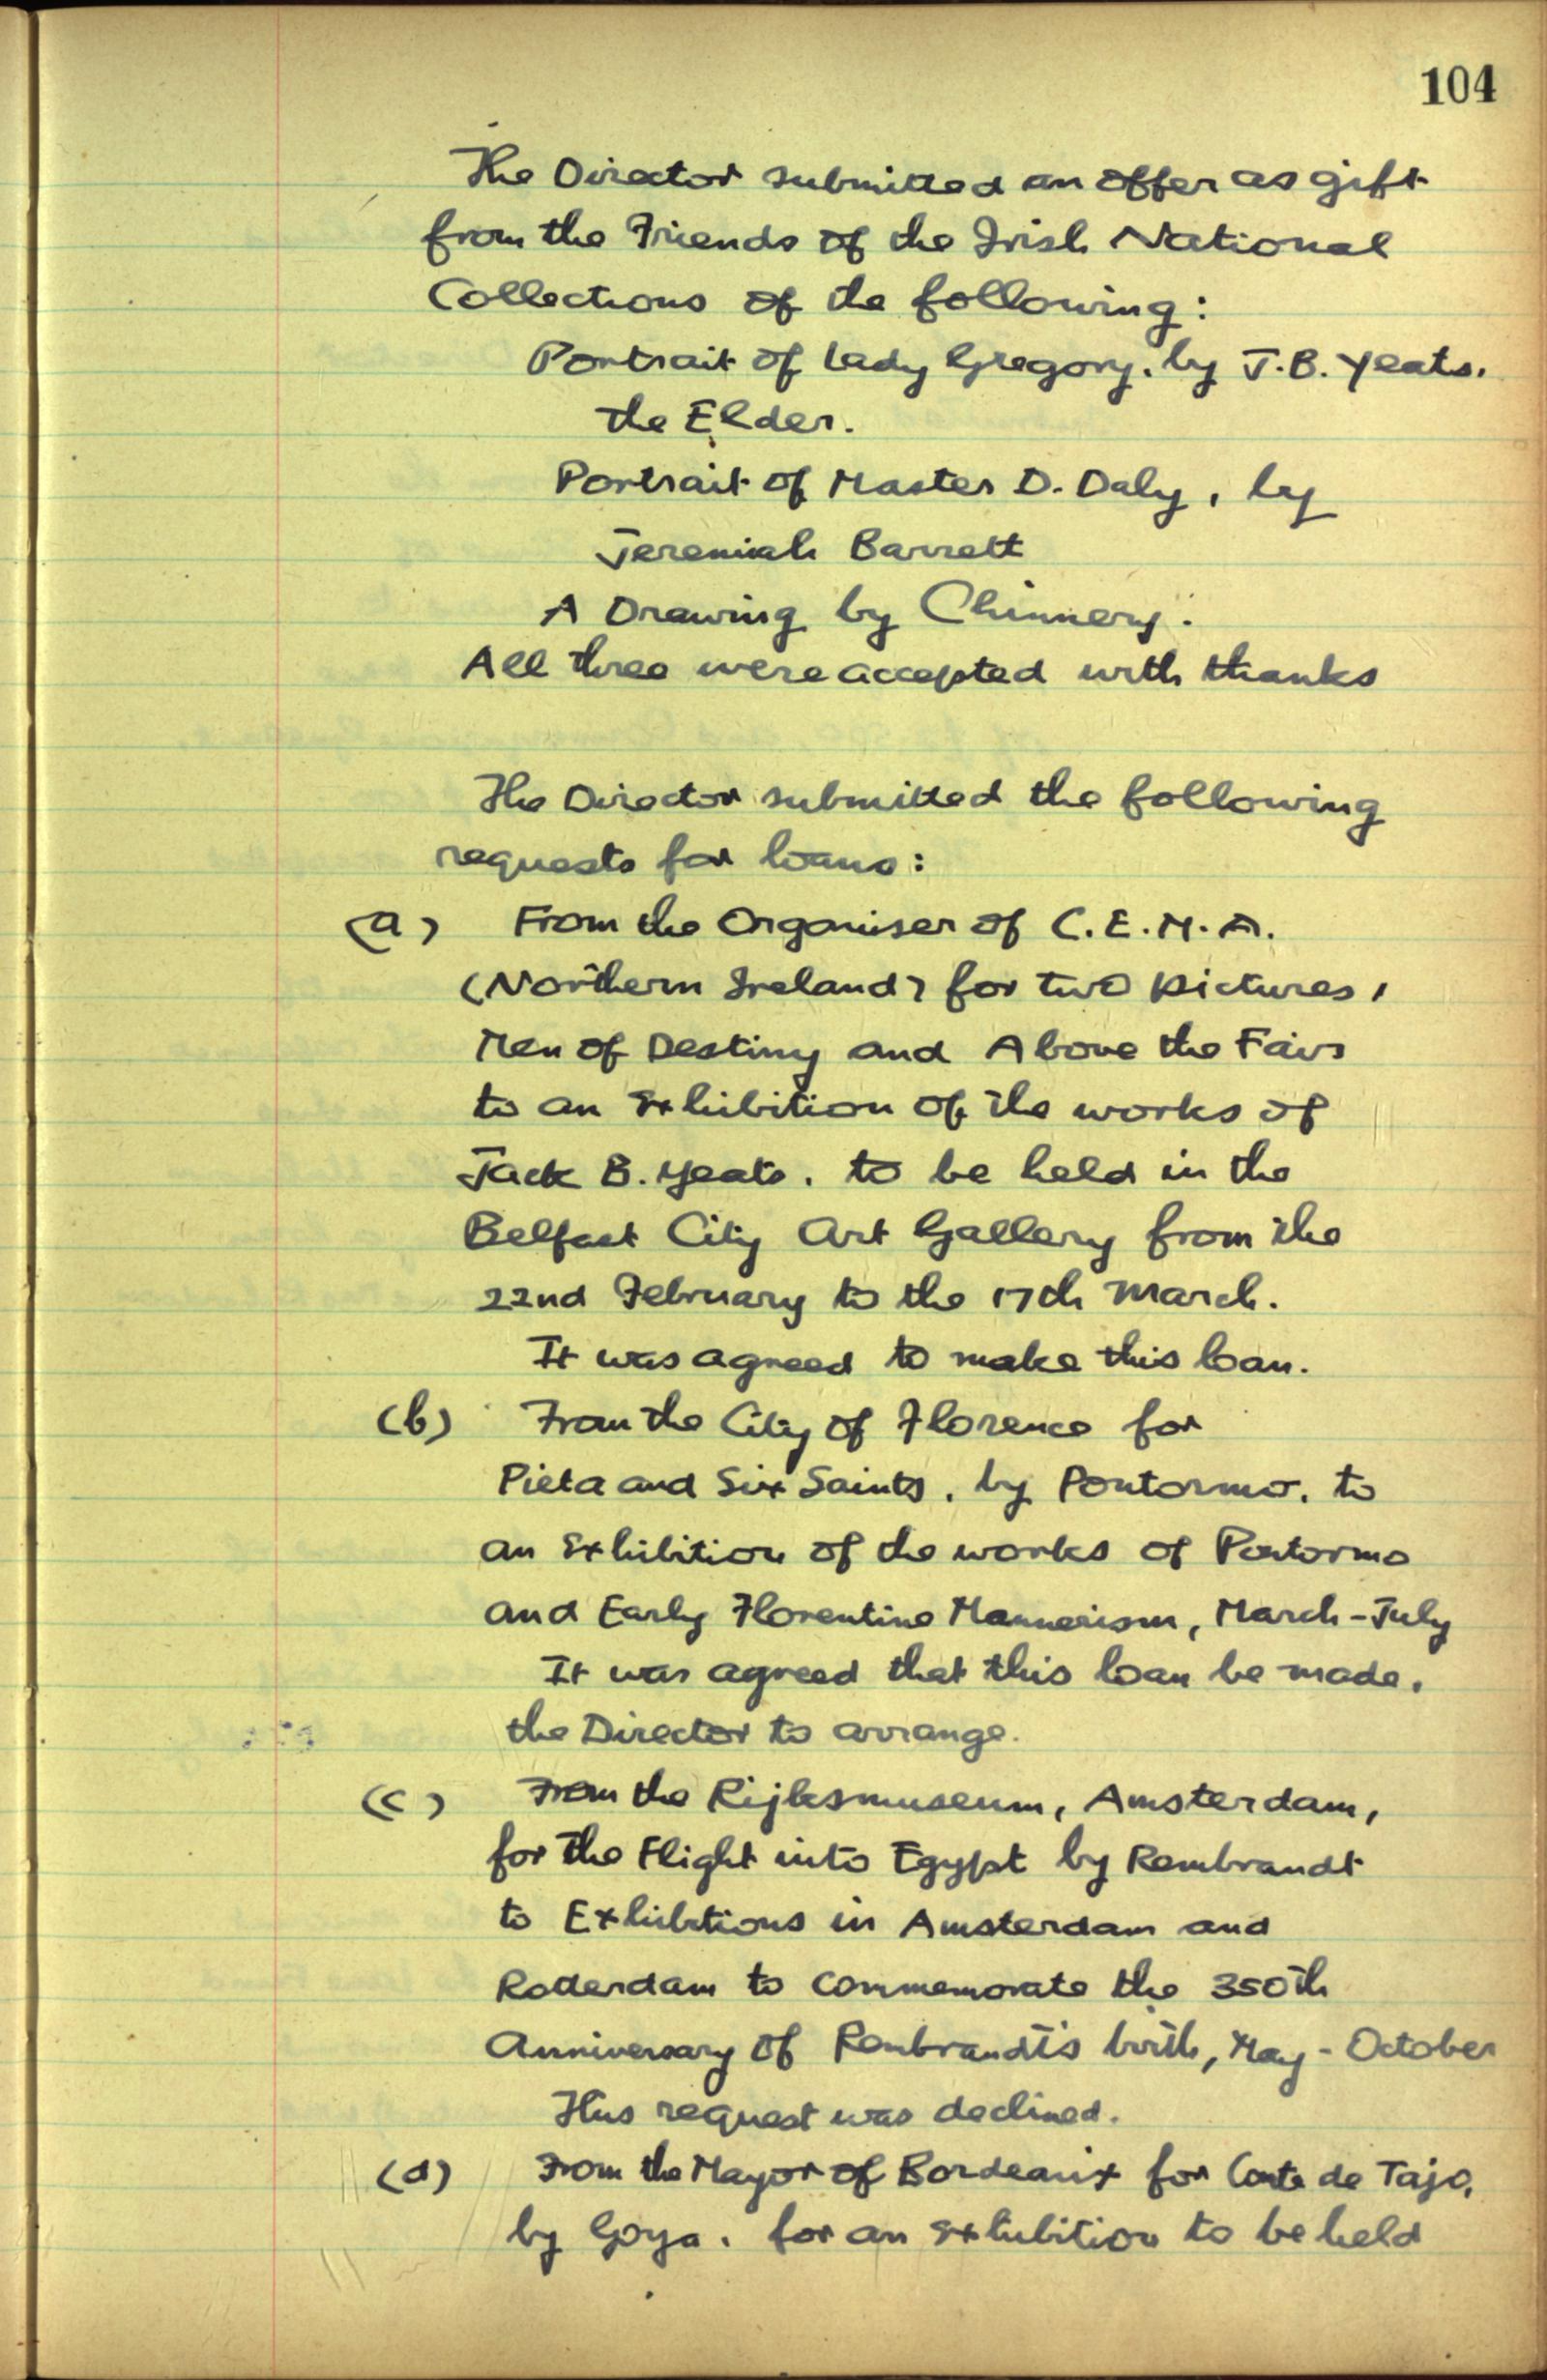 104
The Director submitted an offer as gift
from the Friends of the Irish National
Collections of the following:
Portrait of Lady Gregory, by J.B. Yeats.
the Elder.
Portrait of Master D. Daly, by
Jeremiah Barrett
A Drawing by Chinnery.
All three were accepted with thanks
The Director submitted the following
requests for loans:
(a) From the Organiser of C.E.M.A.
(Northern Ireland) for two pictures,
Men of Destiny and Above the Fair
to an Exhibition of the works of
Jack B. Yeats. to be held in the
Belfast City Art Gallery from the
22nd February to the 17th March.
It was agreed to make this loan.
(b) From the City of Florence for
Pieta and Six Saints, by Pontormo, to
an Exhibition of the works of Pontormo
and Early Florentine Mannerism, March - July
It was agreed that this loan be made,
the Director to arrange.
(c) From the Rijksmuseum, Amsterdam,
for the Flight into Egypt by Rembrandt
to Exhibitions in Amsterdam and
Rotterdam to commemorate the 350th
Anniversary of Rembrandt's birth, May - October
This request was declined.
(d) From the Mayor of Bordeaux for Conte de Tajo,
by Goya, for an Exhibition to be held